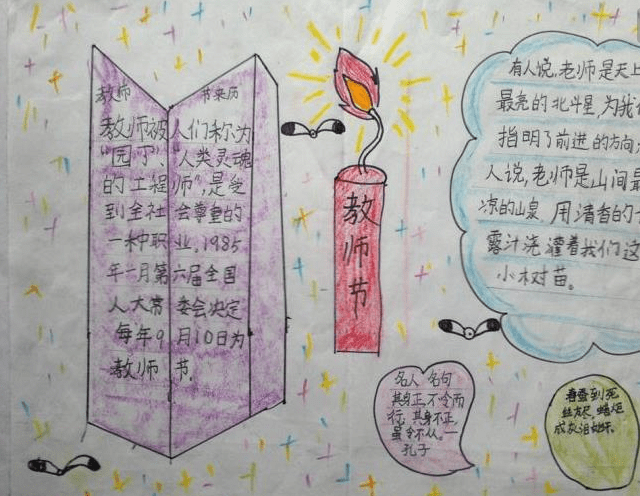 教师 节来历
教师被人们称为
"园丁"、"人类灵魂
的工程师",是受
到全社会尊重的
一种职业,1985
年一月第六届全国
人大常委会决定
每年9月10日为
教师节.
教师节
有人说,老师是天上
最亮的北斗星,为我
指明了前进的方向
人说,老师是山间
凉的山泉,用清香的
露汁浇灌着我们这
小树苗。
名人名句
其身正,不令而
行,其身不正,
虽令不从。一
孔子
春蚕到死
丝方尽 蜡炬
成灰泪始干